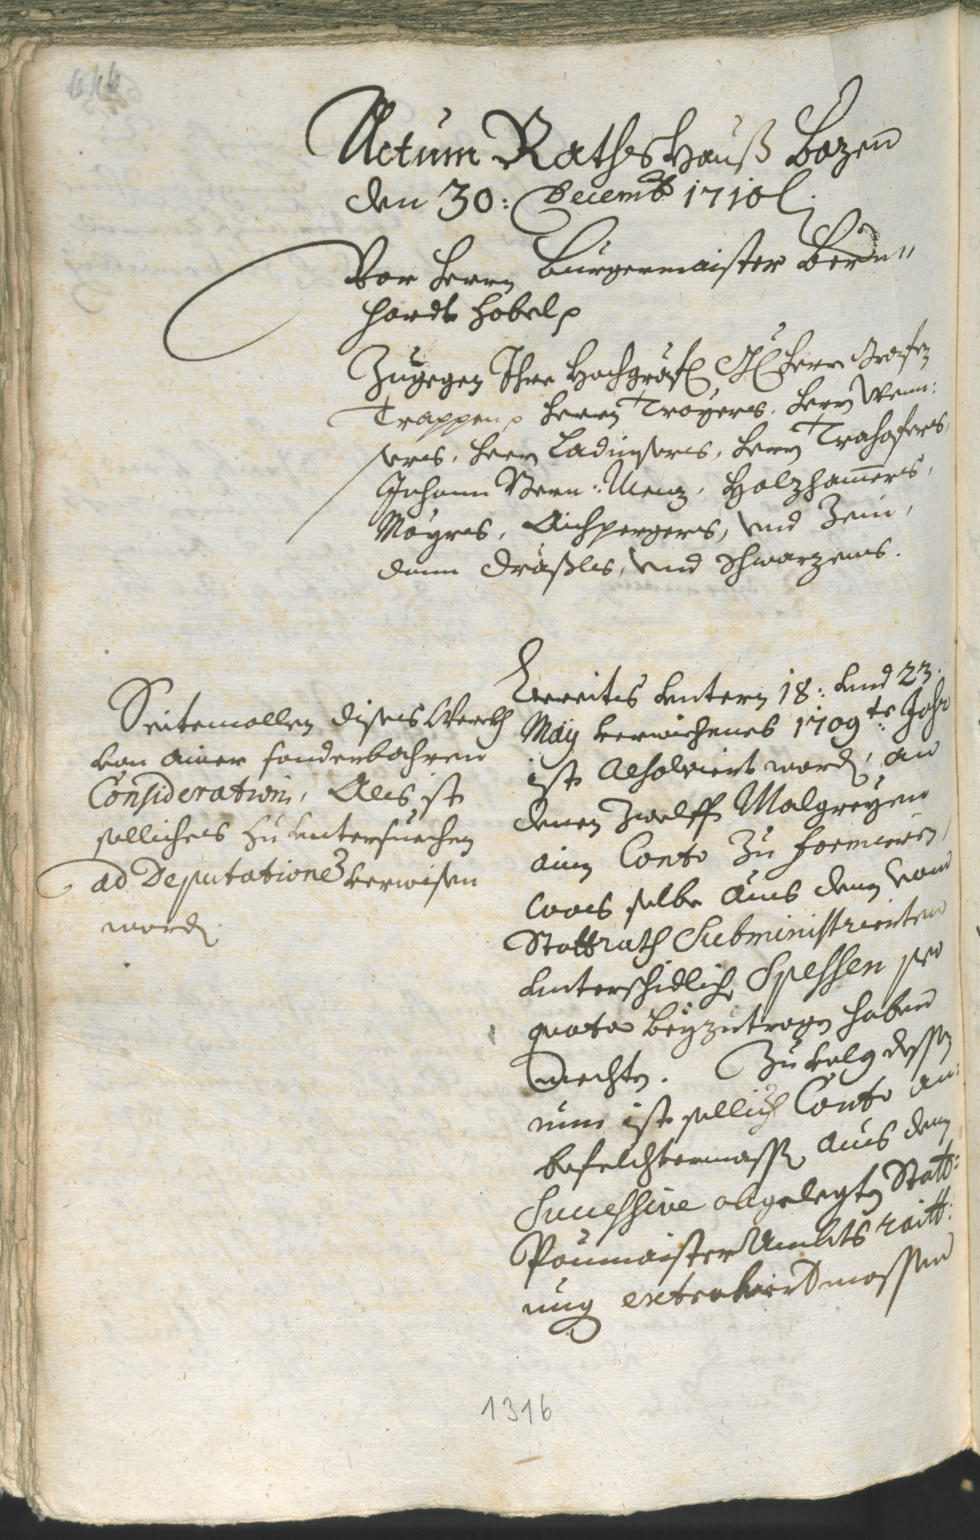 616
Actum Rathshauß Bozen
den 30: Decemb 1710
Vor herrn Burgermaister Bern„
hardt Hobel
Zugegen Ihre Hochgräfl herr Grafen
Trappen herrn Troyers, herrn
herrn Ladurners, herrn
Johann Menz, Holzhamers,
Mayrs, Aichpergers, vnd
dann vnd Schwarzens.
Seitemallen dises Werckh
von ainer sonderbahren
Consideration, Als ist
solliches zu untersuechen
ad Deputationem verwisen
worden
Bereits untern 18: und 23.
May verwichenes 1709te Jahr
ist resolviert worden, an
denen Zwelff Malgreyen
ain Conto zu formieren,
was selbe aus dem vom
Stattrath Subministrierten
unterschidlichen Spessen pro
quota beyzutragen haben
mechten. Zu volg dessen
nun ist sollich Conto an„
befelchtermassen aus den
Successive abgelegten Statt„
Paumaister Ambts raitt„
ung extrahiert massen
1316